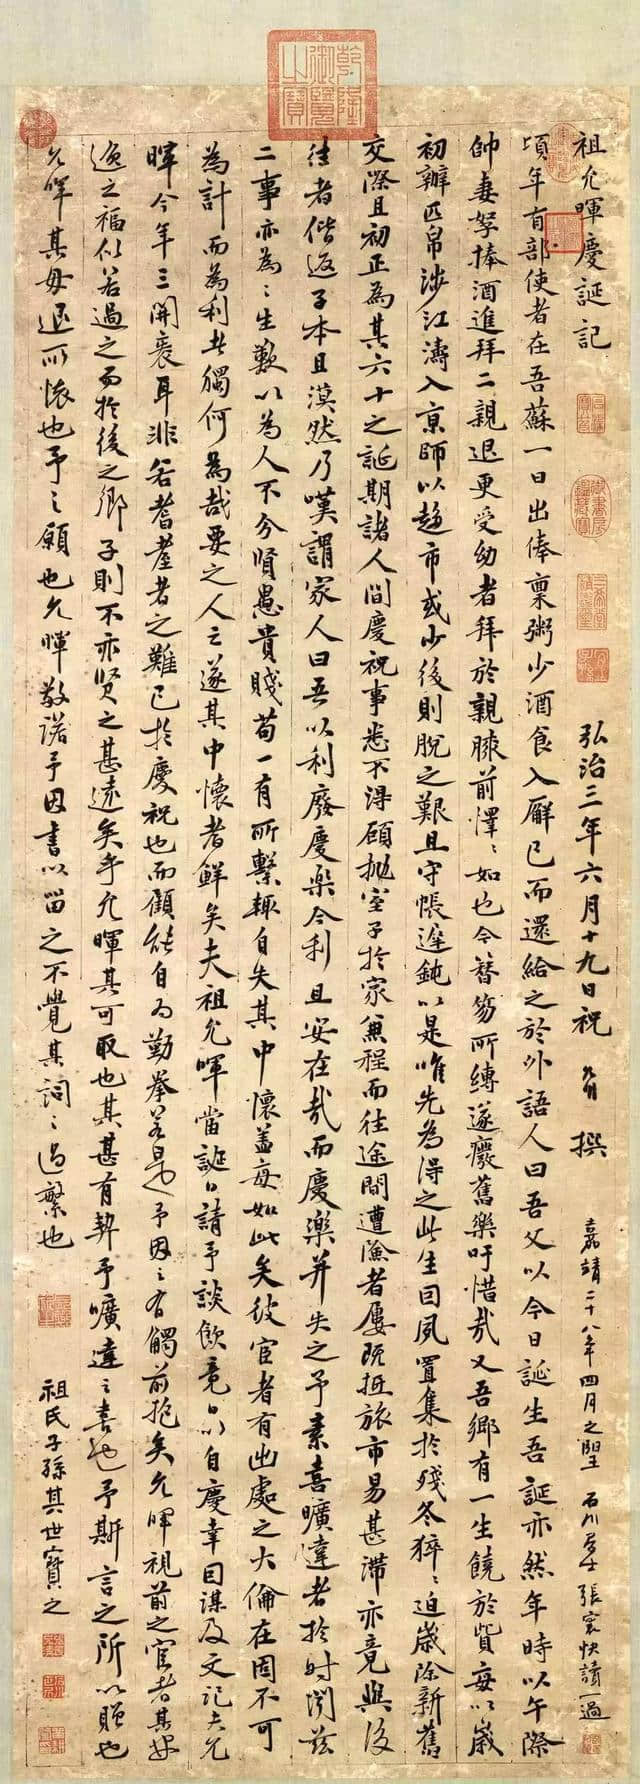 乾隆御覽之寶
祖允暉慶誕記
弘治三年六月十九日祝允明撰
嘉靖二十八年四月之望 石川居士張寰快讀一過
頃年有部使者在吾蘇一日出俸稟粥少酒食入廨已而還給之於外語人曰吾父以今日誕生吾誕亦然年時以午際
帥妻孥捧酒進拜二親退更受幼者拜於親膝前懌懌如也今簪笏所縛遂癈舊樂吁惜哉又吾鄉有一生饒於貲每以歲
初辦匹帛涉江濤入京師以趨市或少後則脫之艱且守帳遲鈍以是唯先為得之此生回夙置集於殘冬猝猝迫歲除新舊
交際且初正為其六十之誕期諸人間慶祝事悉不得顧拋室子於家兼程而往途間遭險者屢既抵旅市易甚滯亦竟與後
往者偕返子本且漠然乃嘆謂家人曰吾以利廢慶樂今利且安在哉而慶樂并失之予素喜曠達者於時閔茲
二事亦為之生歎以為人不分賢愚貴賤苟一有所繫輒自失其中懷盖每如此矣彼宦者有出處之大倫在固不可
為計而為利者獨何為哉要之人之遂其中懷者鮮矣夫祖允暉當誕日請予談飲竟日以自慶幸因謀及文記夫允
暉今年三開袠耳非若耆耋者之難已於慶祝也而顧能自為勤拳若是予因之有觸前抱矣允暉視前之宦者其
過之福似若過之而於後之鄉子則不亦賢之甚遠矣乎允暉其可取也其甚有契予曠達之喜也予斯言之所以贈也
允暉其毋遏所懷也予之願也允暉敬諾予因書以留之不覺其詞之過繁也
祖氏子孫其世寶之